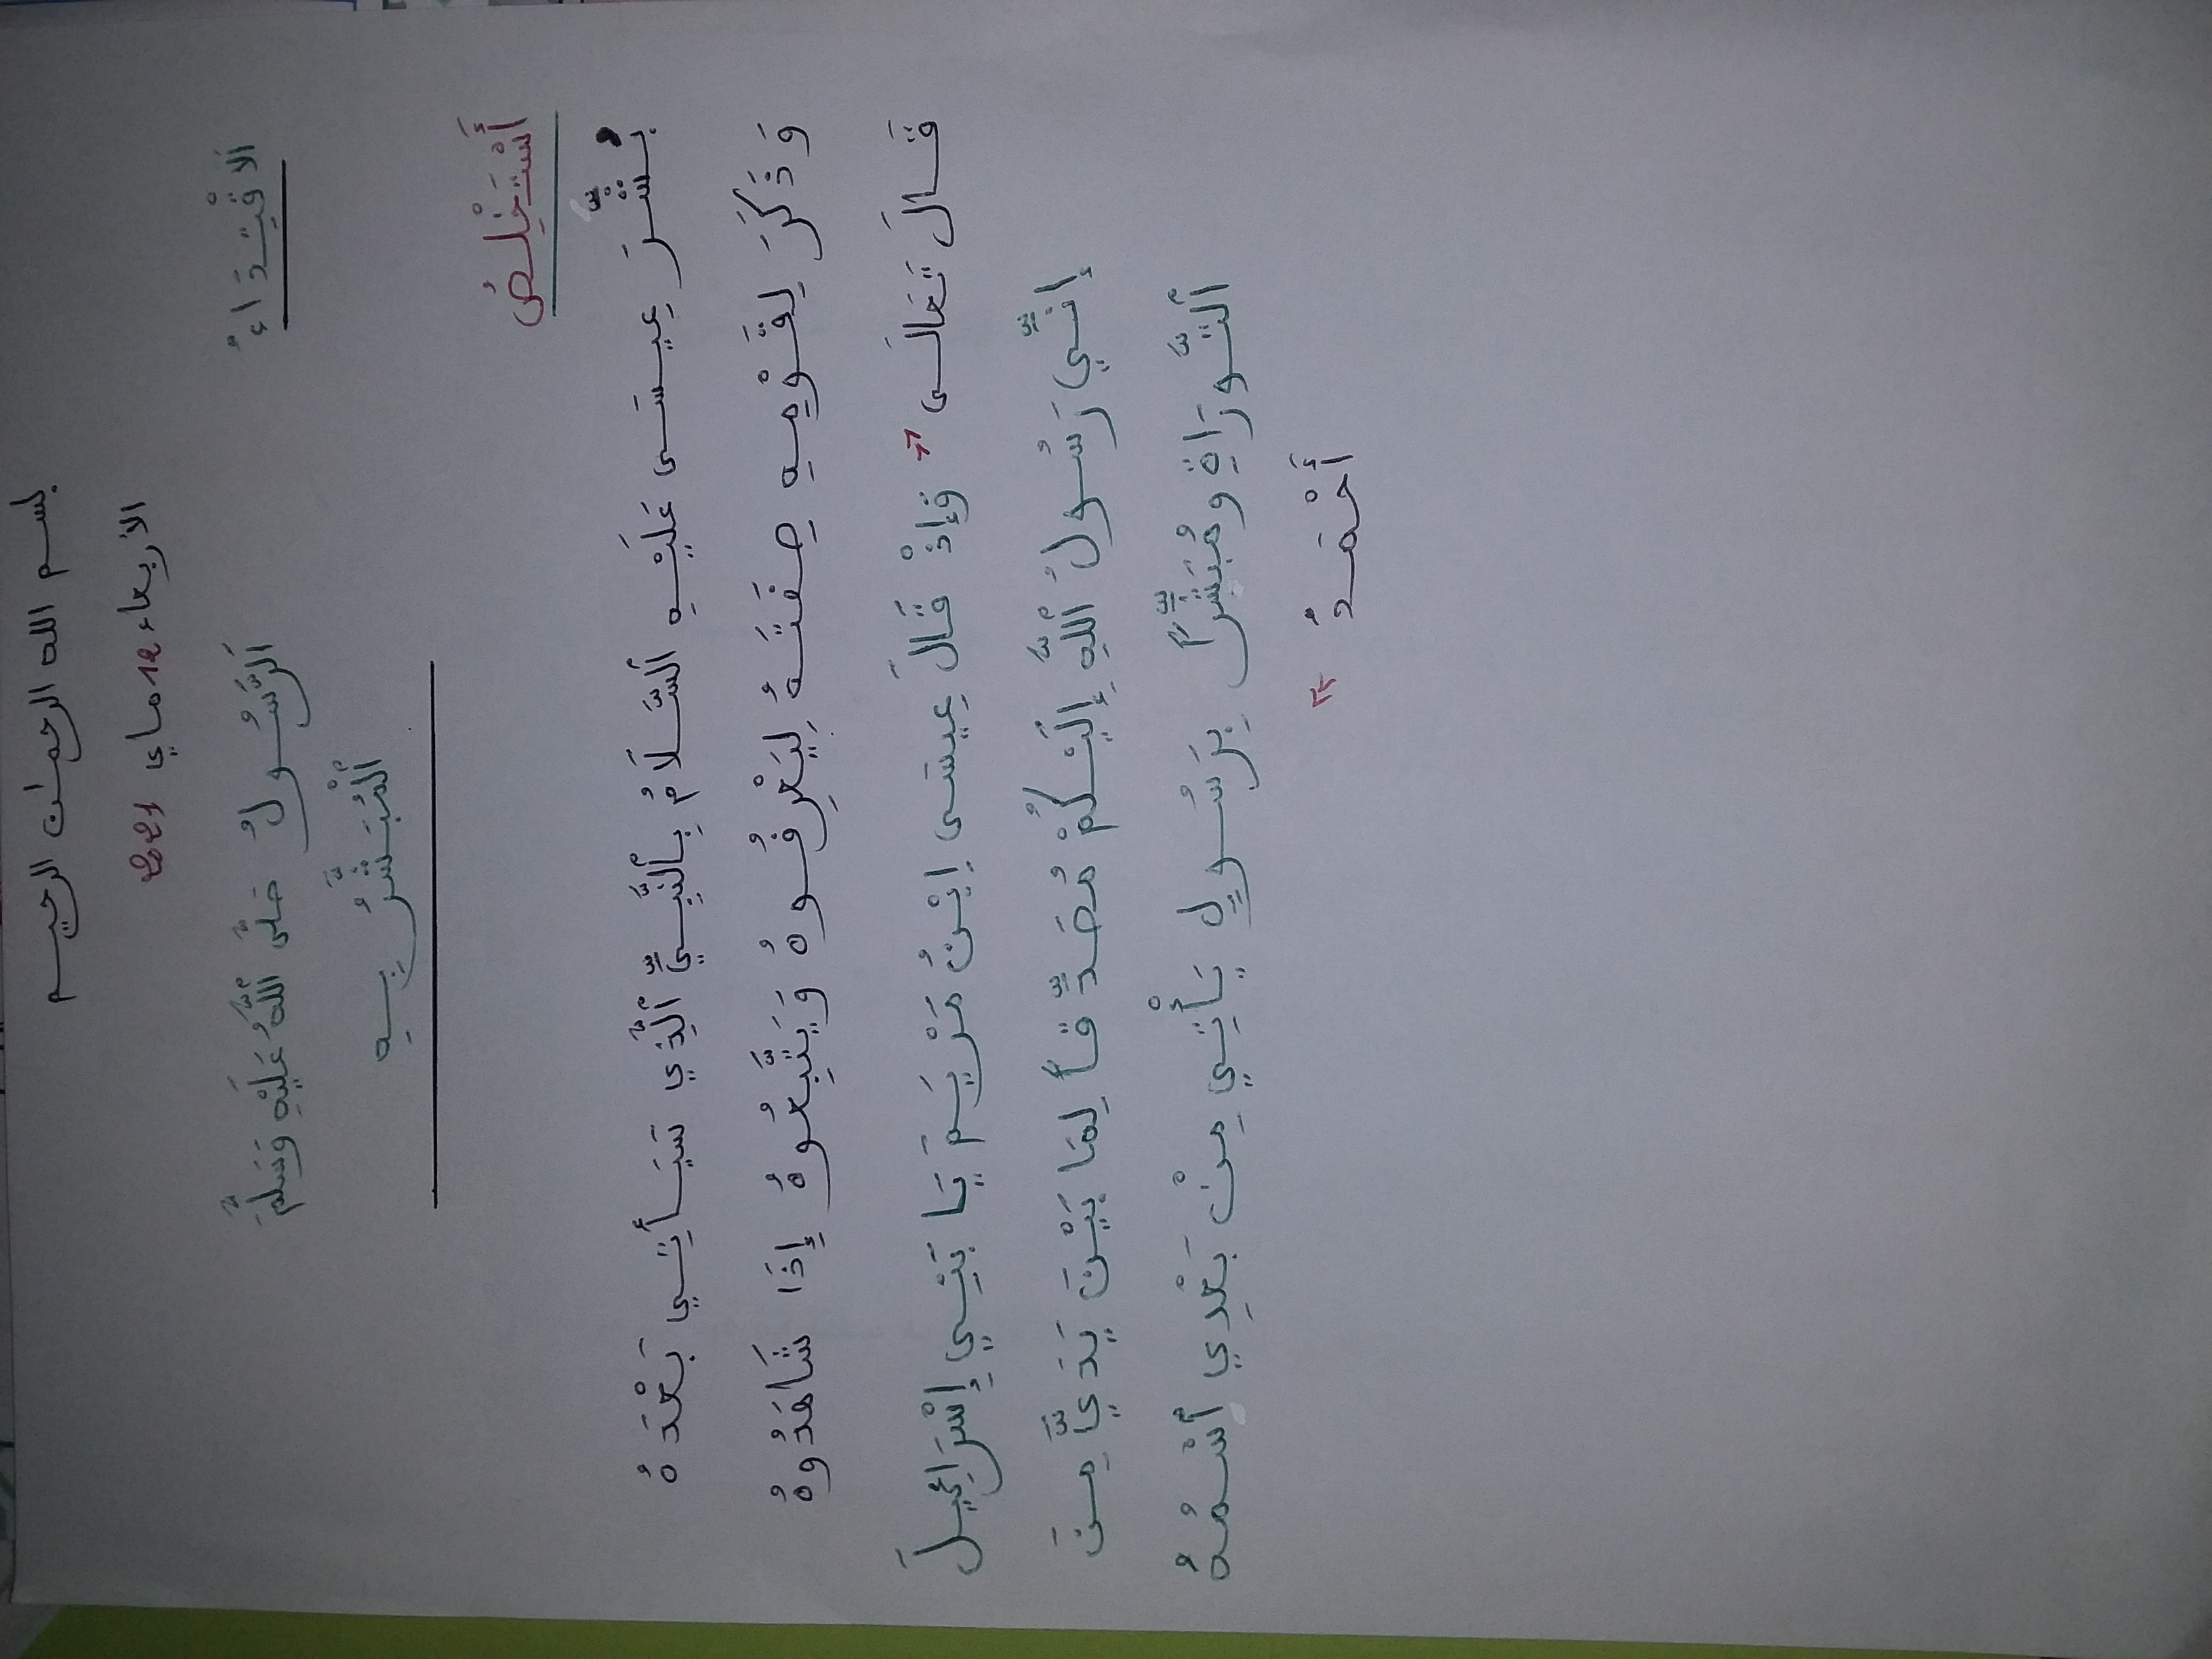 بسم الله الرحمان الرحيم
الأربعاء 12 ماي 2021
اَلاقْتِدَاءُ
اَلرَّسُولُ صَلَّى ٱللَّهُ عَلَيْهِ وَسَلَّمَ
ٱلْمُبَشَّرُ بِهِ
أَسْتَخْلِصُ
بُشِّرَ عِيسَى عَلَيْهِ ٱلسَّلَامُ بِٱلنَّبِيِّ ٱلَّذِي سَيَأتِي بَعْدَهُ
وَذَكَرَ لِقَوْمِهِ صِفَتَهُ لِيَعْرِفُوهُ وَيَتَّبِعُوهُ إِذَا شَاهَدُوهُ
قَالَ تَعَالَى " وَإِذْ قَالَ عِيسَى اِبْنُ مَرْيَمَ يَا بَنِي إِسْرَائِيلَ
إِنِّي رَسُولُ ٱللَّهِ إِلَيْكُمْ مُصَدِّقاً لِمَا بَيْنَ يَدَيَّ مِنَ
ٱلتَّورَاةِ ومُبَشِّراً بِرَسُولٍ يَأْتِي مِنْ بَعْدِي ٱسْمُهُ
أَحْمَدُ "